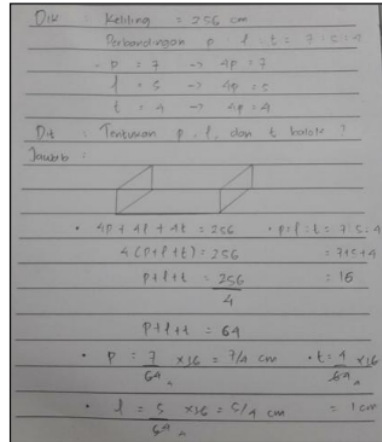 Dik : Keliling = 256 cm
Perbandingan p : l : t = 7 : 5 : 4
- p = 7 -> 4p = 7
l = 5 -> 4p = 5
t = 4 -> 4p = 4
Dit : Tentukan p, l, dan t balok ?
Jawab :
• 4p + 4l + 4t = 256 • p:l:t = 7:5:4
4 (p+l+t) = 256 = 7+5+4
p+l+t = 256/4 = 16
p+l+t = 64
• p = 7/64 x16 = 7/4 cm • t = 4/64 x16
• l = 5/64 x16 = 5/4 cm = 1 cm